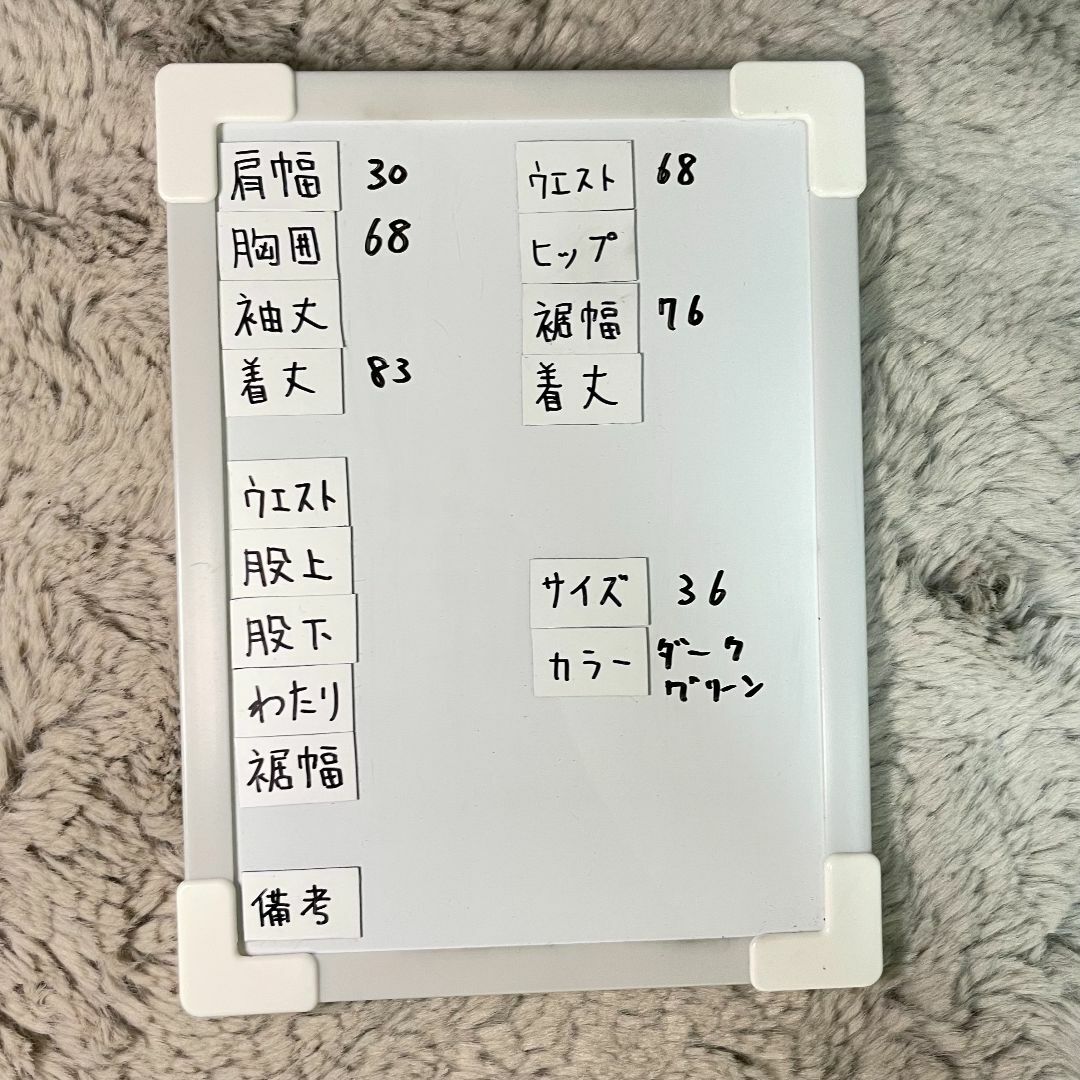 肩幅 30
胸囲 68
袖丈
着丈 83
ウエスト
股上
股下
わたり
裾幅
備考
ウエスト 68
ヒップ
裾幅 76
着丈
サイズ 36
カラー ダーク
グリーン